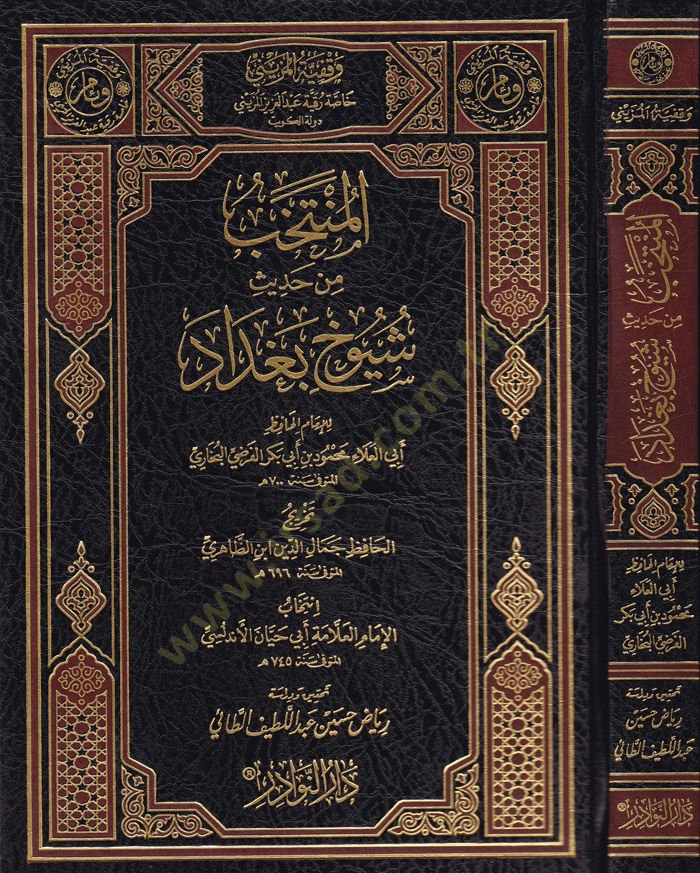 وقفية المزيني
خاصة رقية عبدالعزيز المزيني
دولة الكويت
المنتخب
من حديث
شيوخ بغداد
للإمام الحافظ
أبي العلاء محمود بن أبي بكر الفرضي البخاري
المتوفى سنة ٧٠٠ هـ
تخريج
الحافظ جمال الدين ابن الظاهري
المتوفى سنة ٦٩٦ هـ
انتخاب
الإمام العلامة أبي حيان الأندلسي
المتوفى سنة ٧٤٥ هـ
تحقيق ودراسة
رياض حسين عبد اللطيف الطائي
دار النوادر ®
وقفية المزيني
المنتخب
من حديث
شيوخ بغداد
للإمام الحافظ
أبي العلاء
محمود بن أبي بكر
الفرضي البخاري
تحقيق ودراسة
رياض حسين
عبد اللطيف الطائي
دار النوادر ®